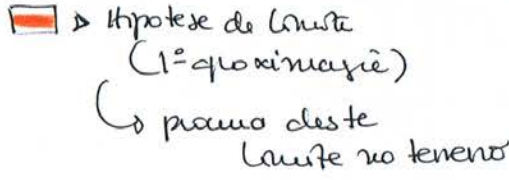 ▷ Hipotese de limite
(1ª aproximação)
↳ procura deste
limite no terreno